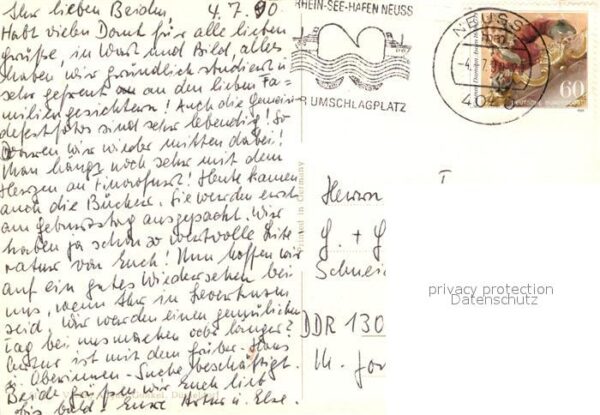 Ihr lieben Beiden 4.7.90
Habt vielen Dank für alle lieben
Grüße, in Wort und Bild, alles
haben wir gründlich studiert u
sehr gefreut an den lieben Fa-
miliengesichtern! Auch die Gemein
defotos sind sehr lebendig! So
waren wir wieder mitten dabei!
Man hängt noch sehr mit dem
Herzen an Heute kamen
auch die Bücher. Sie werden erst
am Geburtstag ausgepackt. Wir
haben ja schon so wertvolle Lite
ratur von Euch! Nun hoffen wir
auf ein gutes Wiedersehen bei
uns, wenn Ihr in Leverkusen
seid, wir werden einen gemütlichen
Tag bei uns machen oder länger?
ist mit dem
Oberinnen-Suche beschäftigt.
Beide grüßen wir Euch lieb
bis bald - Eure u. Else.
RHEIN-SEE-HAFEN NEUSS
UMSCHLAGPLATZ
NEUSS
4040
60
DEUTSCHE BUNDESPOST
Printed in Germany
Herrn
G. + G
Schnei
DDR 130
privacy protection
Datenschutz